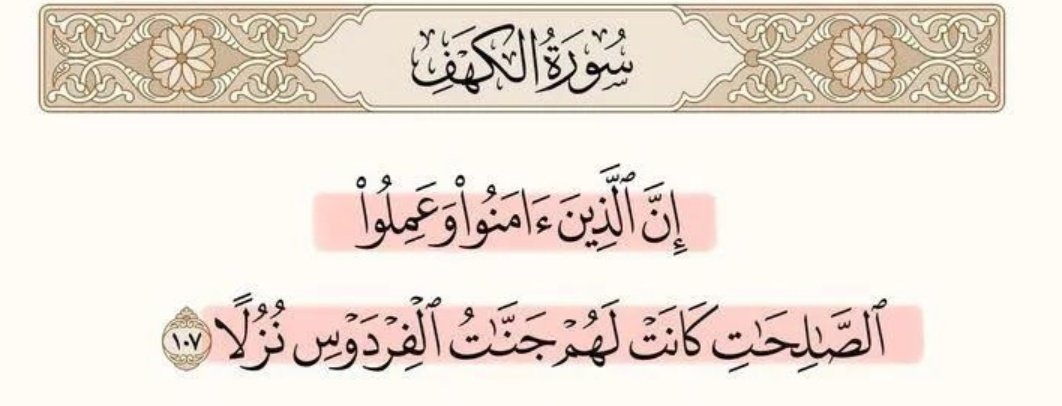 سُورَةُ الكَهْفِ
إِنَّ ٱلَّذِينَ ءَامَنُوا۟ وَعَمِلُوا۟
ٱلصَّـٰلِحَـٰتِ كَانَتْ لَهُمْ جَنَّـٰتُ ٱلْفِرْدَوْسِ نُزُلًا ١٠٧